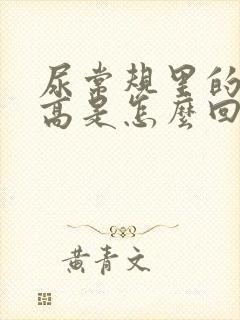 尿常规里的
高是怎麼回
黄青文